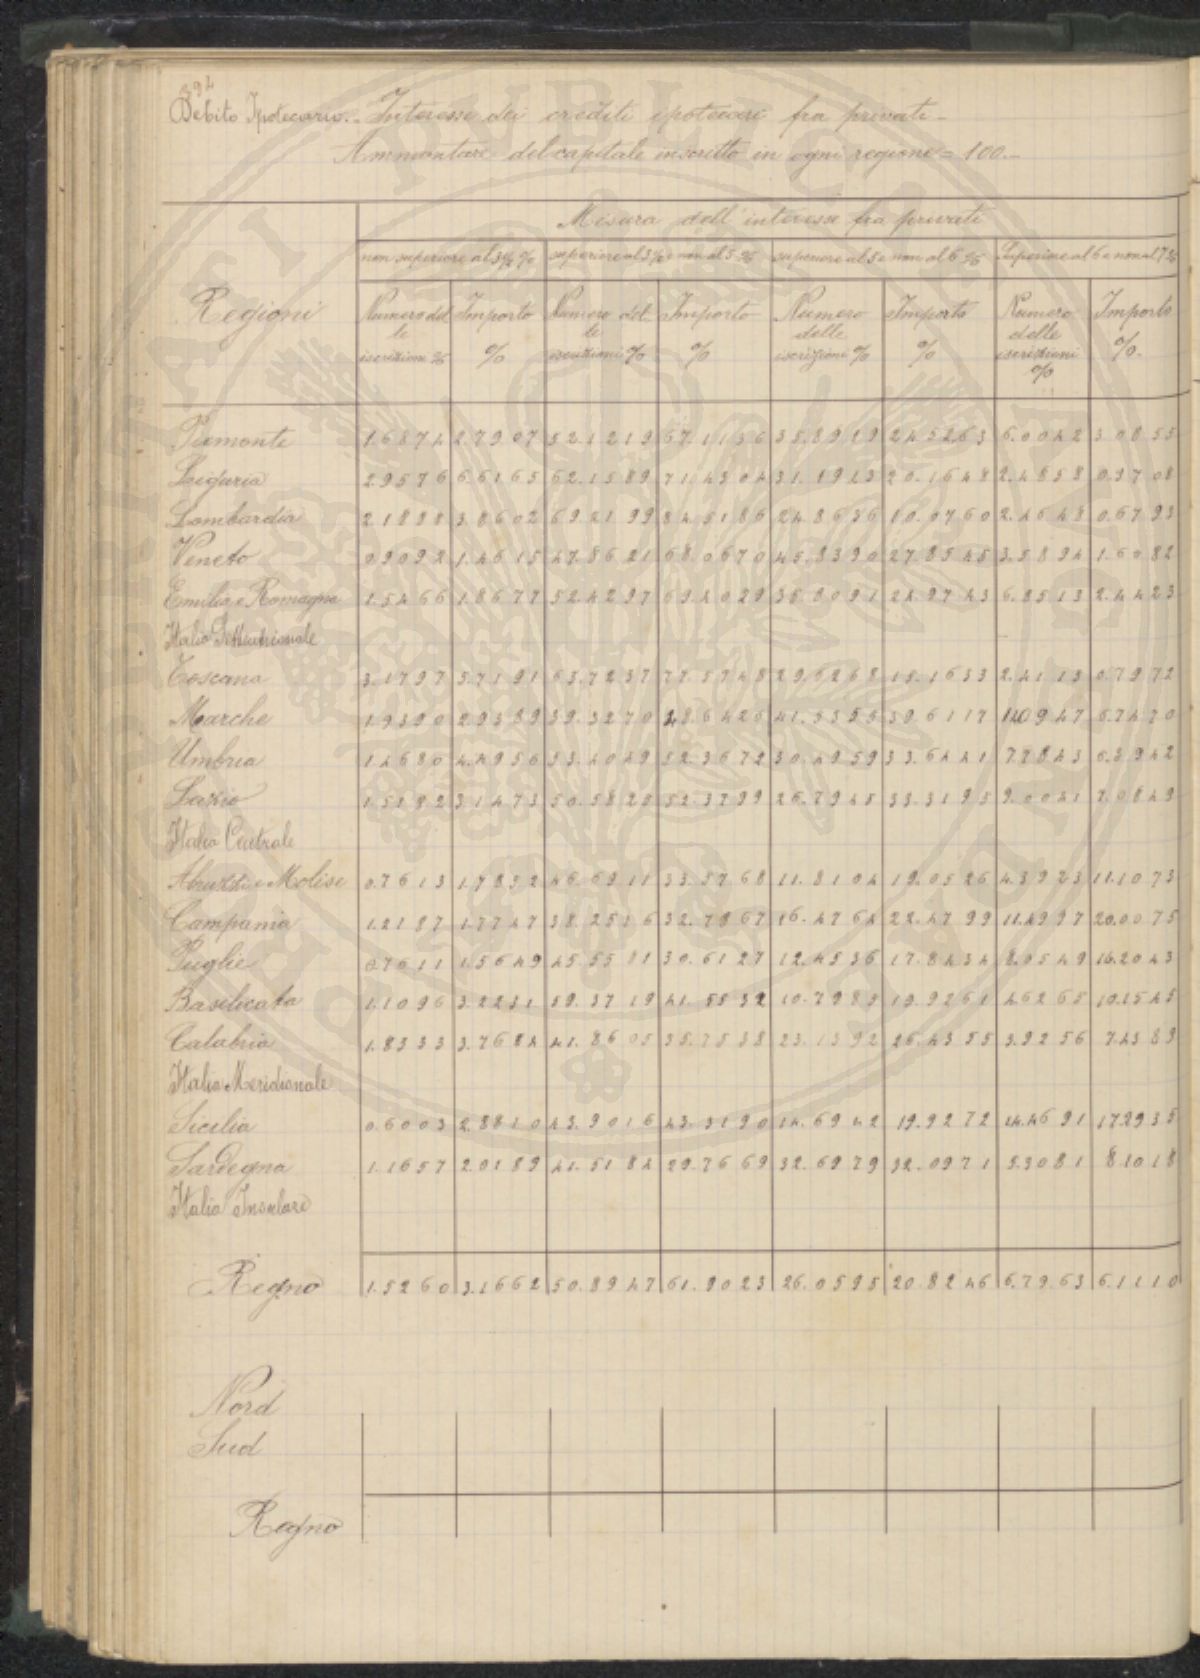 394
Debito Ipotecario. - Interesse dei crediti ipotecari fra privati -
Ammontare del capitale inscritto in ogni regione = 100. -
Misura dell'interesse fra privati
non superiore al 3½ % superiore al 3½ e non al 5 % superiore al 5 e non al 6 % Superiore al 6 e non al 7 %
Regioni Numero del Importo Numero del Importo Numero Importo Numero Importo
le le delle delle
iscrizioni % % iscrizioni % % iscrizioni % % iscrizioni %.
%
Piemonte 1.6874 2.7907 52.1219 67.1136 35.8929 24.5263 6.0042 3.0855
Liguria 2.9576 6.6165 62.1589 71.4304 31.1923 20.1648 2.4858 0.3708
Lombardia 2.1898 3.8602 69.2199 84.5186 24.8636 10.0760 2.4648 0.6793
Veneto 0.9092 1.4615 47.8621 68.0670 45.8390 27.8545 3.5894 1.6082
Emilia e Romagna 1.5466 1.8677 52.4297 69.4029 38.8091 24.9743 6.8513 2.4423
Italia Settentrionale
Toscana 3.1797 5.7191 63.7237 77.5748 29.6268 15.1633 2.4113 0.7972
Marche 1.9390 2.9389 39.3270 48.6426 41.5355 39.6117 11.0947 6.7470
Umbria 1.4680 4.4956 53.4049 52.3672 30.4959 33.6441 7.7843 6.3942
Lazio 1.5192 3.1473 50.5825 52.3799 26.7945 33.3195 9.0041 7.0849
Italia Centrale
Abruzzi e Molise 0.7613 1.7852 46.6911 33.5768 11.8104 19.0526 4.3923 11.1073
Campania 1.2187 1.7747 38.2516 32.7867 16.4764 22.4799 11.4997 20.0075
Puglie 0.7611 1.5649 45.5581 30.6127 12.4536 17.8434 8.0549 16.2043
Basilicata 1.1096 3.2231 59.3719 41.5532 10.7989 19.9261 4.6265 10.1545
Calabria 1.8333 3.7684 41.8605 35.7538 23.1392 26.4355 3.9256 7.4389
Italia Meridionale
Sicilia 0.6003 2.8810 43.9016 43.3190 14.6942 19.9272 14.4691 17.2935
Sardegna 1.1657 2.0189 41.5184 29.7669 32.6979 32.0971 5.3081 8.1018
Italia Insulare
Regno 1.5260 3.1662 50.8947 61.9023 26.0595 20.8246 6.7963 6.1110
Nord
Sud
Regno